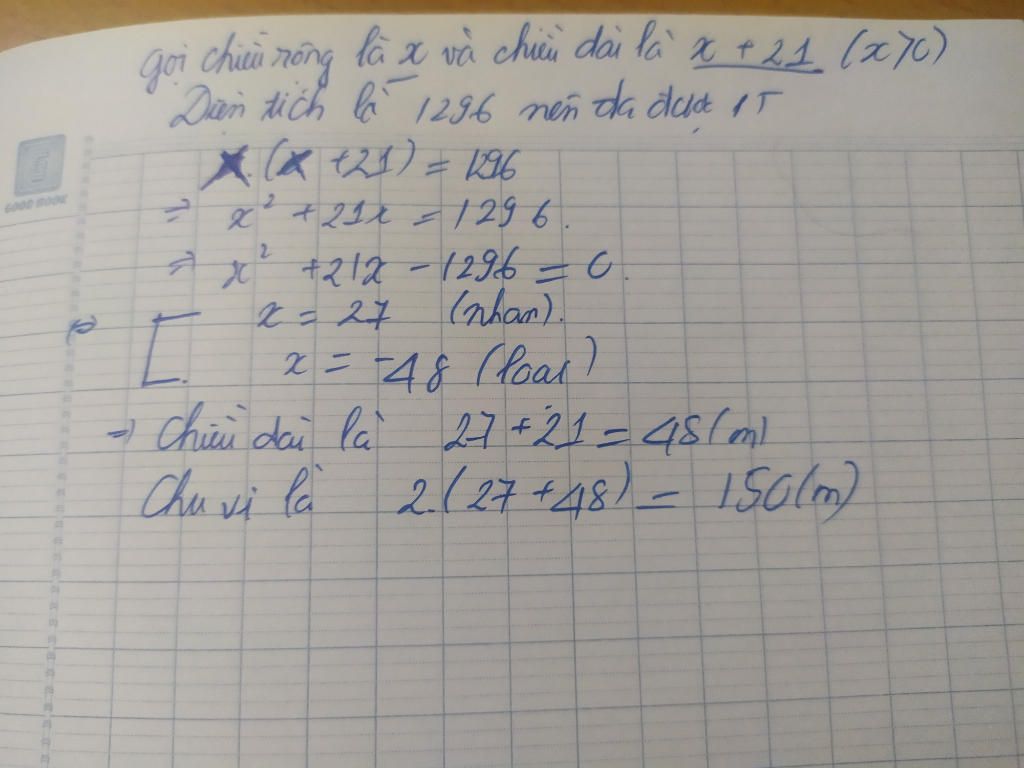 gọi chiều rộng là x và chiều dài là x + 21 (x>0)
Diện tích là 1296 nên ta được PT
x.(x + 21) = 1296
⇒ x² + 21x = 1296.
⇒ x² + 21x - 1296 = 0.
⇒ [ x = 27 (nhan).
x = -48 (loai)
⇒ Chiều dài là 27 + 21 = 48(m)
Chu vi là 2.(27 + 48) = 150(m)
GOOD BOOK